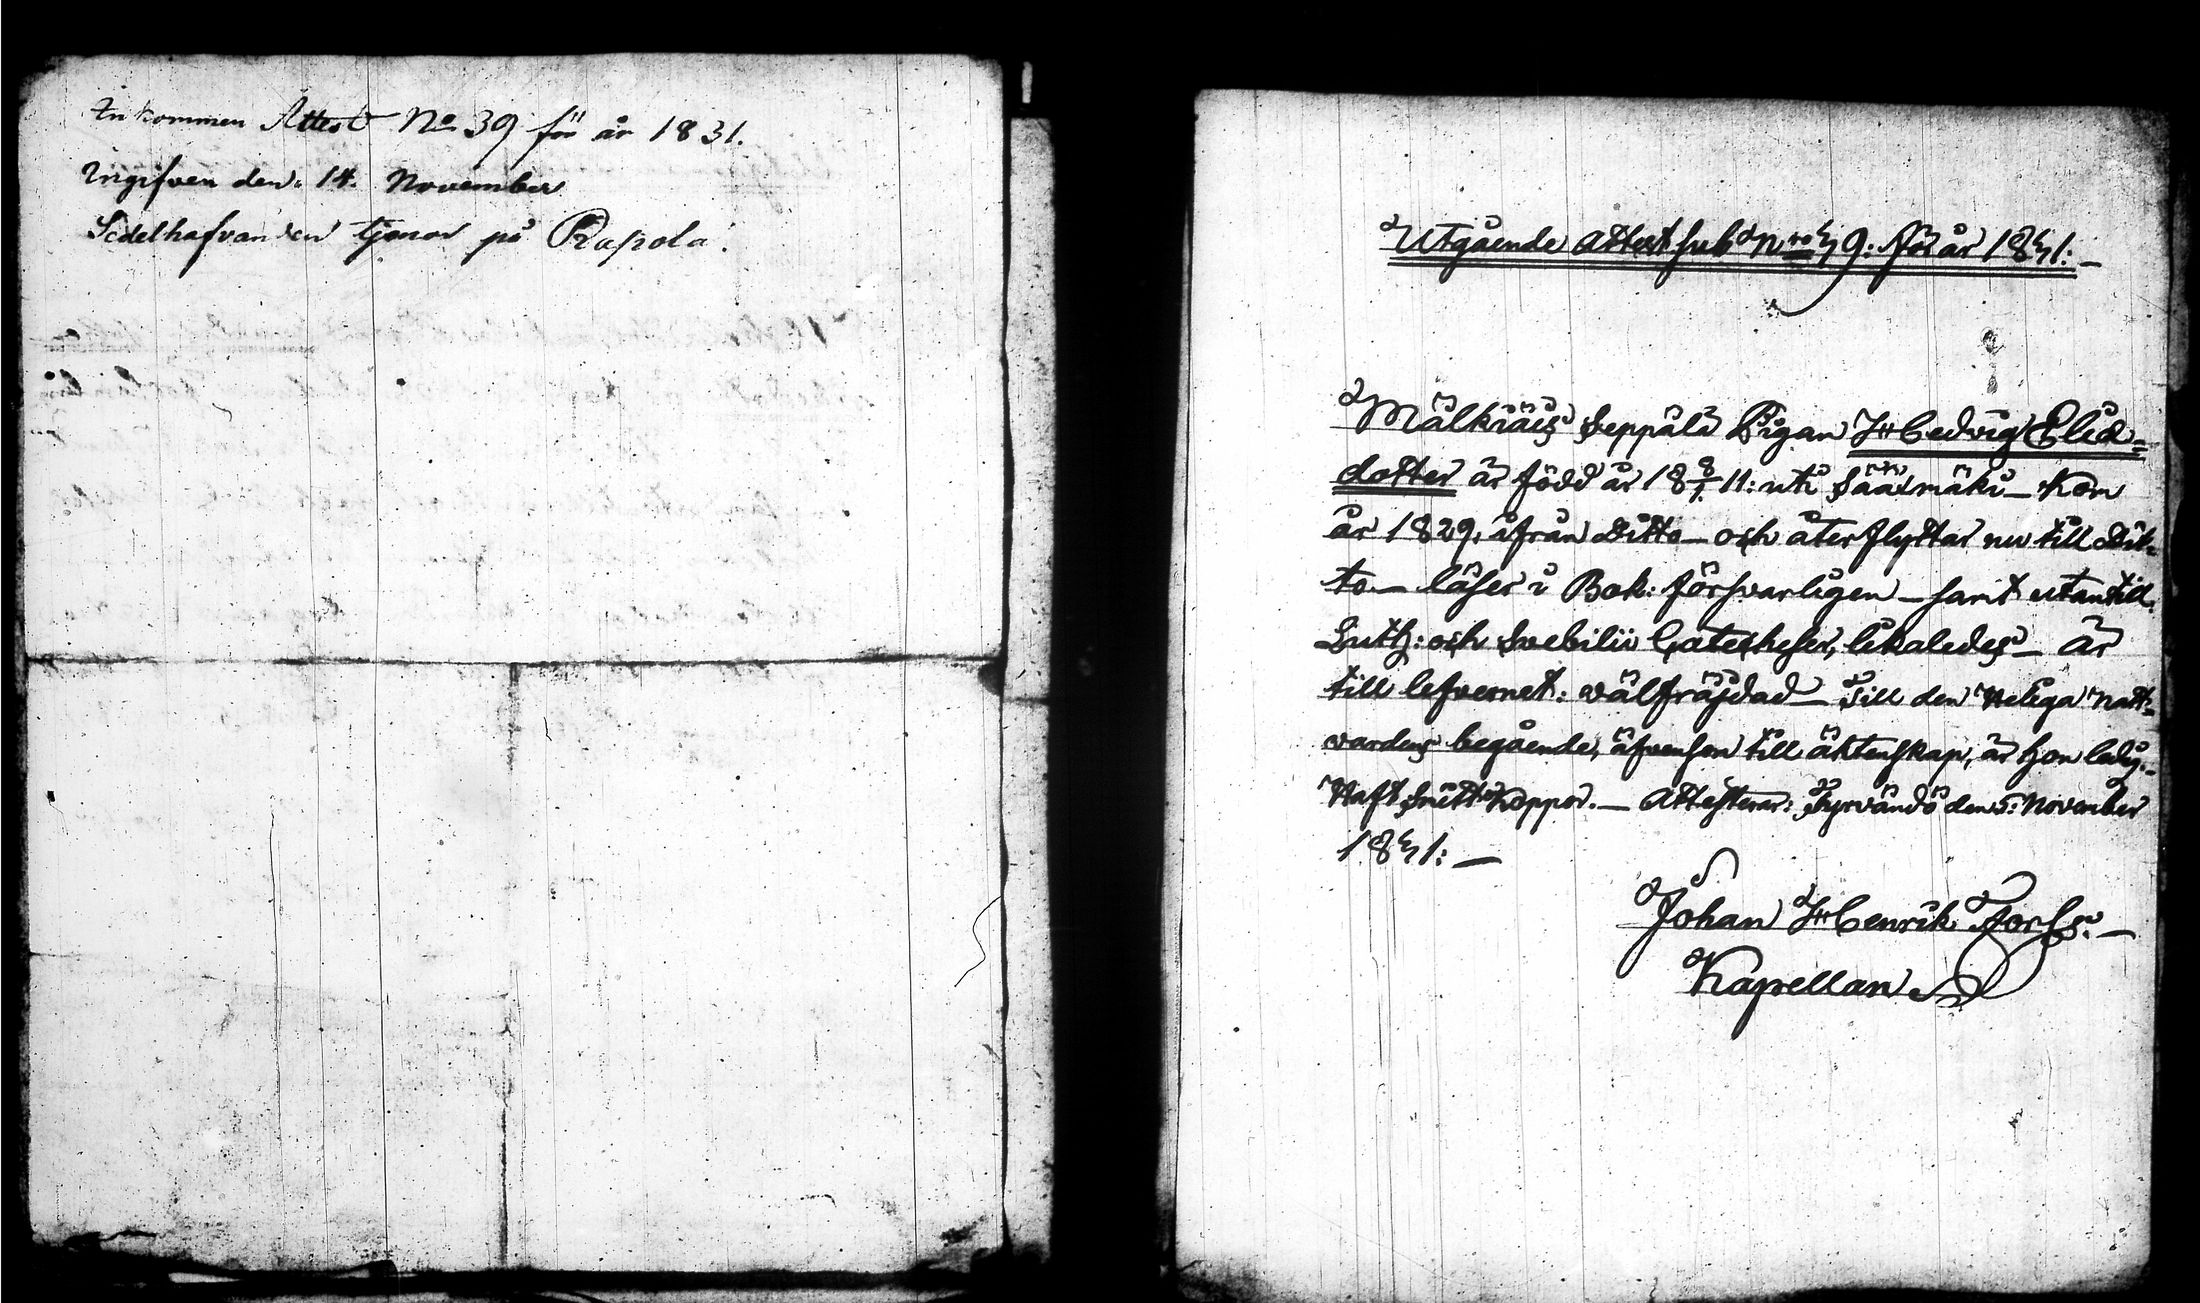 Inkommen Attest No 39 för år 1831.
Ingifven den 14. November
Sedelhafvanden tjenar på Rapola.
Utgående Attest sub Nro 39: för år 1831:—
Mälkiäis Seppälä Pigan Hedvig Elias=
dotter är född år 18 8/1. 11: uti Sääxmäki — kom
år 1829, ifrån Ditto — och återflyttar nu till Dit=
to — läser i Bok: försvarligen — samt utantill.
Luth: och Svebilii Catecheser, likaledes — är
till lefvernet: wälfräjdad — Till den Heliga Natt=
vardens begående, äfvensom till äktenskap, är hon ledig.—
Haft Koppor.— Attesterar: Tyrvändö den 5: November
1831:—
Johan Henrik Forss:—
Kapellan